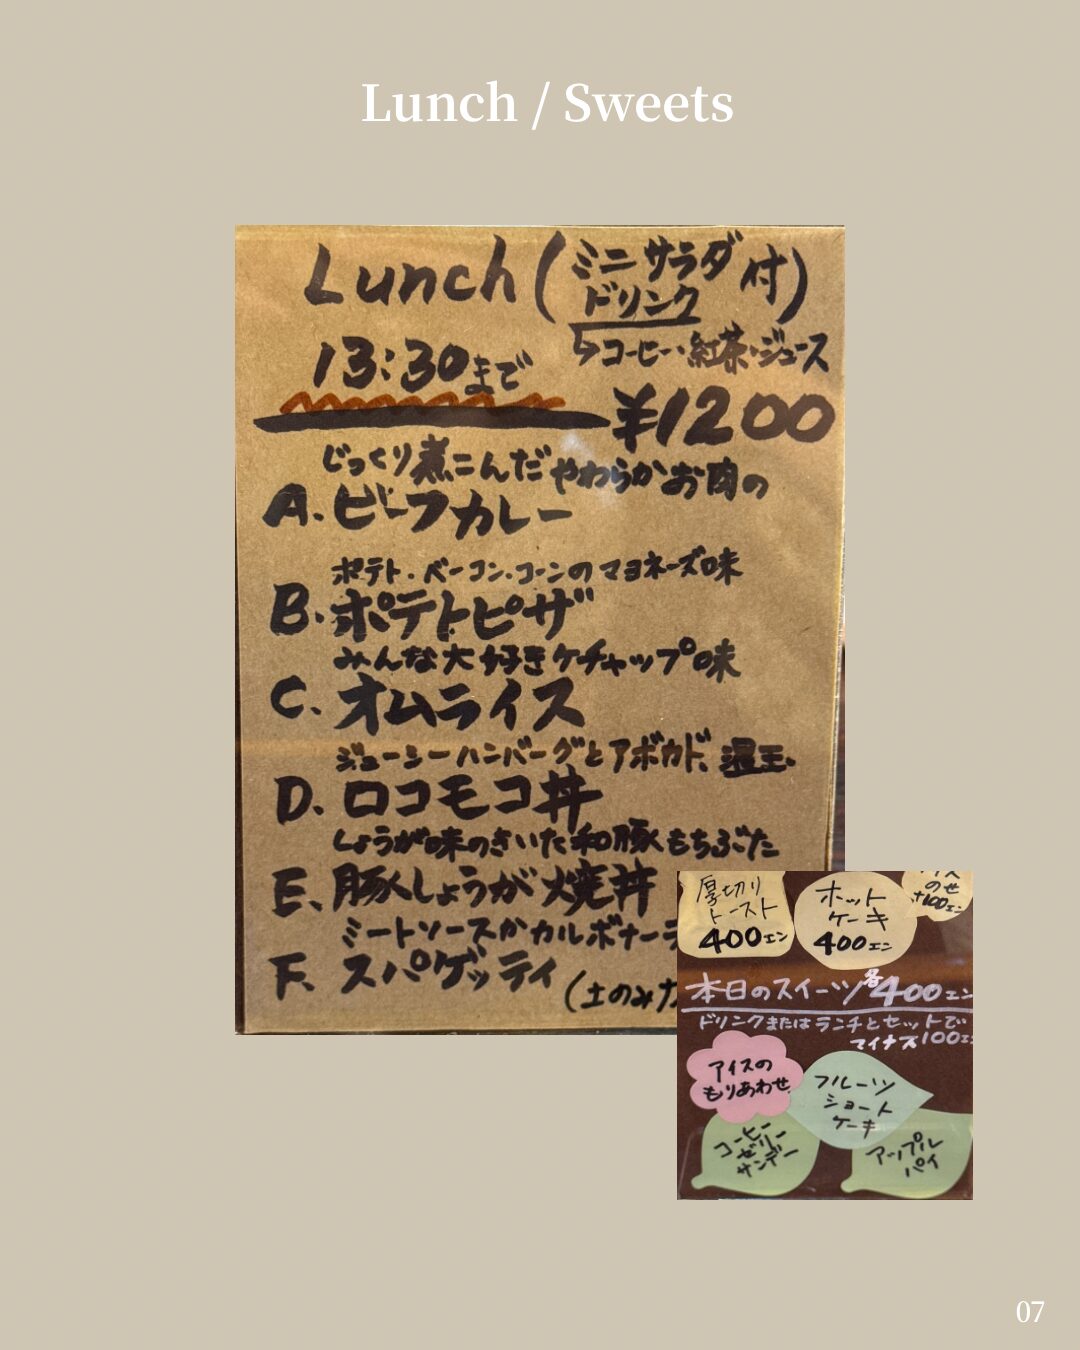 Lunch / Sweets
Lunch (ミニサラダ
ドリンク 付)
↳コーヒー・紅茶・ジュース
13:30まで
¥1200
じっくり煮こんだやわらかお肉の
A. ビーフカレー
ポテト・ベーコン・コーンのマヨネーズ味
B. ポテトピザ
みんな大好きケチャップ味
C. オムライス
ジューシーハンバーグとアボカド、温玉
D. ロコモコ丼
しょうが味のきいた和豚もちぶた
E. 豚しょうが焼丼
ミートソースかカルボナーラ
F. スパゲッティ
(土のみ
厚切り
トースト
400エン
ホット
ケーキ
400エン
のせ
+100エン
本日のスイーツ 各400エン
ドリンクまたはランチとセットで
マイナス100エン
アイスの
もりあわせ
フルーツ
ショート
ケーキ
コーヒー
ゼリー
サンデー
アップル
パイ
07